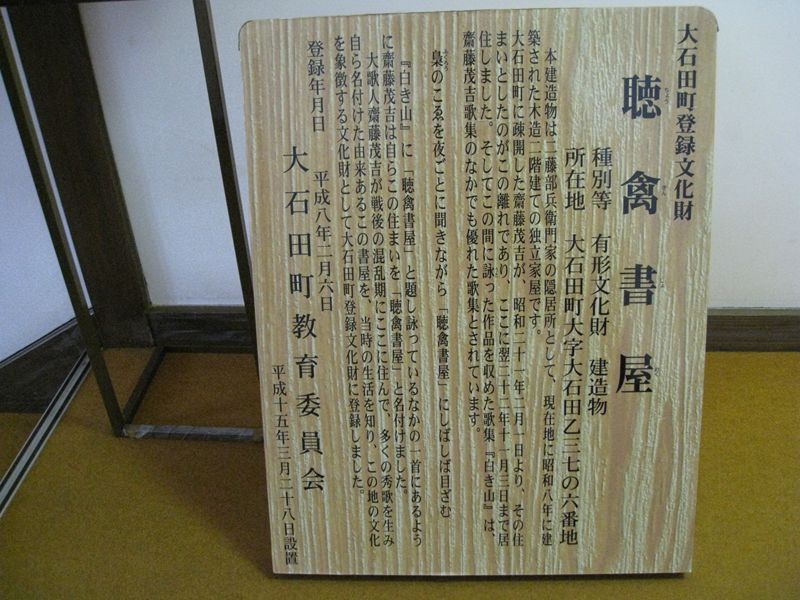 大石田町登録文化財
聴禽書屋
ちょう きん しょ おく
種別等 有形文化財 建造物
所在地 大石田町大字大石田乙三七の六番地
本建造物は二藤部兵衛門家の隠居所として、現在地に昭和八年に建
築された木造二階建ての独立家屋です。
大石田町に疎開した齋藤茂吉が、昭和二十一年二月一日より、その住
まいとしたのがこの離れであり、ここに翌二十二年十一月三日まで居
住しました。そしてこの間に詠った作品を収めた歌集『白き山』は、
齋藤茂吉歌集のなかでも優れた歌集とされています。
梟のこゑを夜ごとに聞きながら「聴禽書屋」にしばしば目ざむ
『白き山』に「聴禽書屋」と題し詠っているなかの一首にあるよう
に齋藤茂吉は自らこの住まいを「聴禽書屋」と名付けました。
大歌人齋藤茂吉が戦後の混乱期にここに住んで、多くの秀歌を生み
自ら名付けた由来あるこの書屋を、当時の生活を知り、この地の文化
を象徴する文化財として大石田町登録文化財に登録しました。
登録年月日 平成八年二月六日
大石田町教育委員会
平成十五年三月二十八日設置